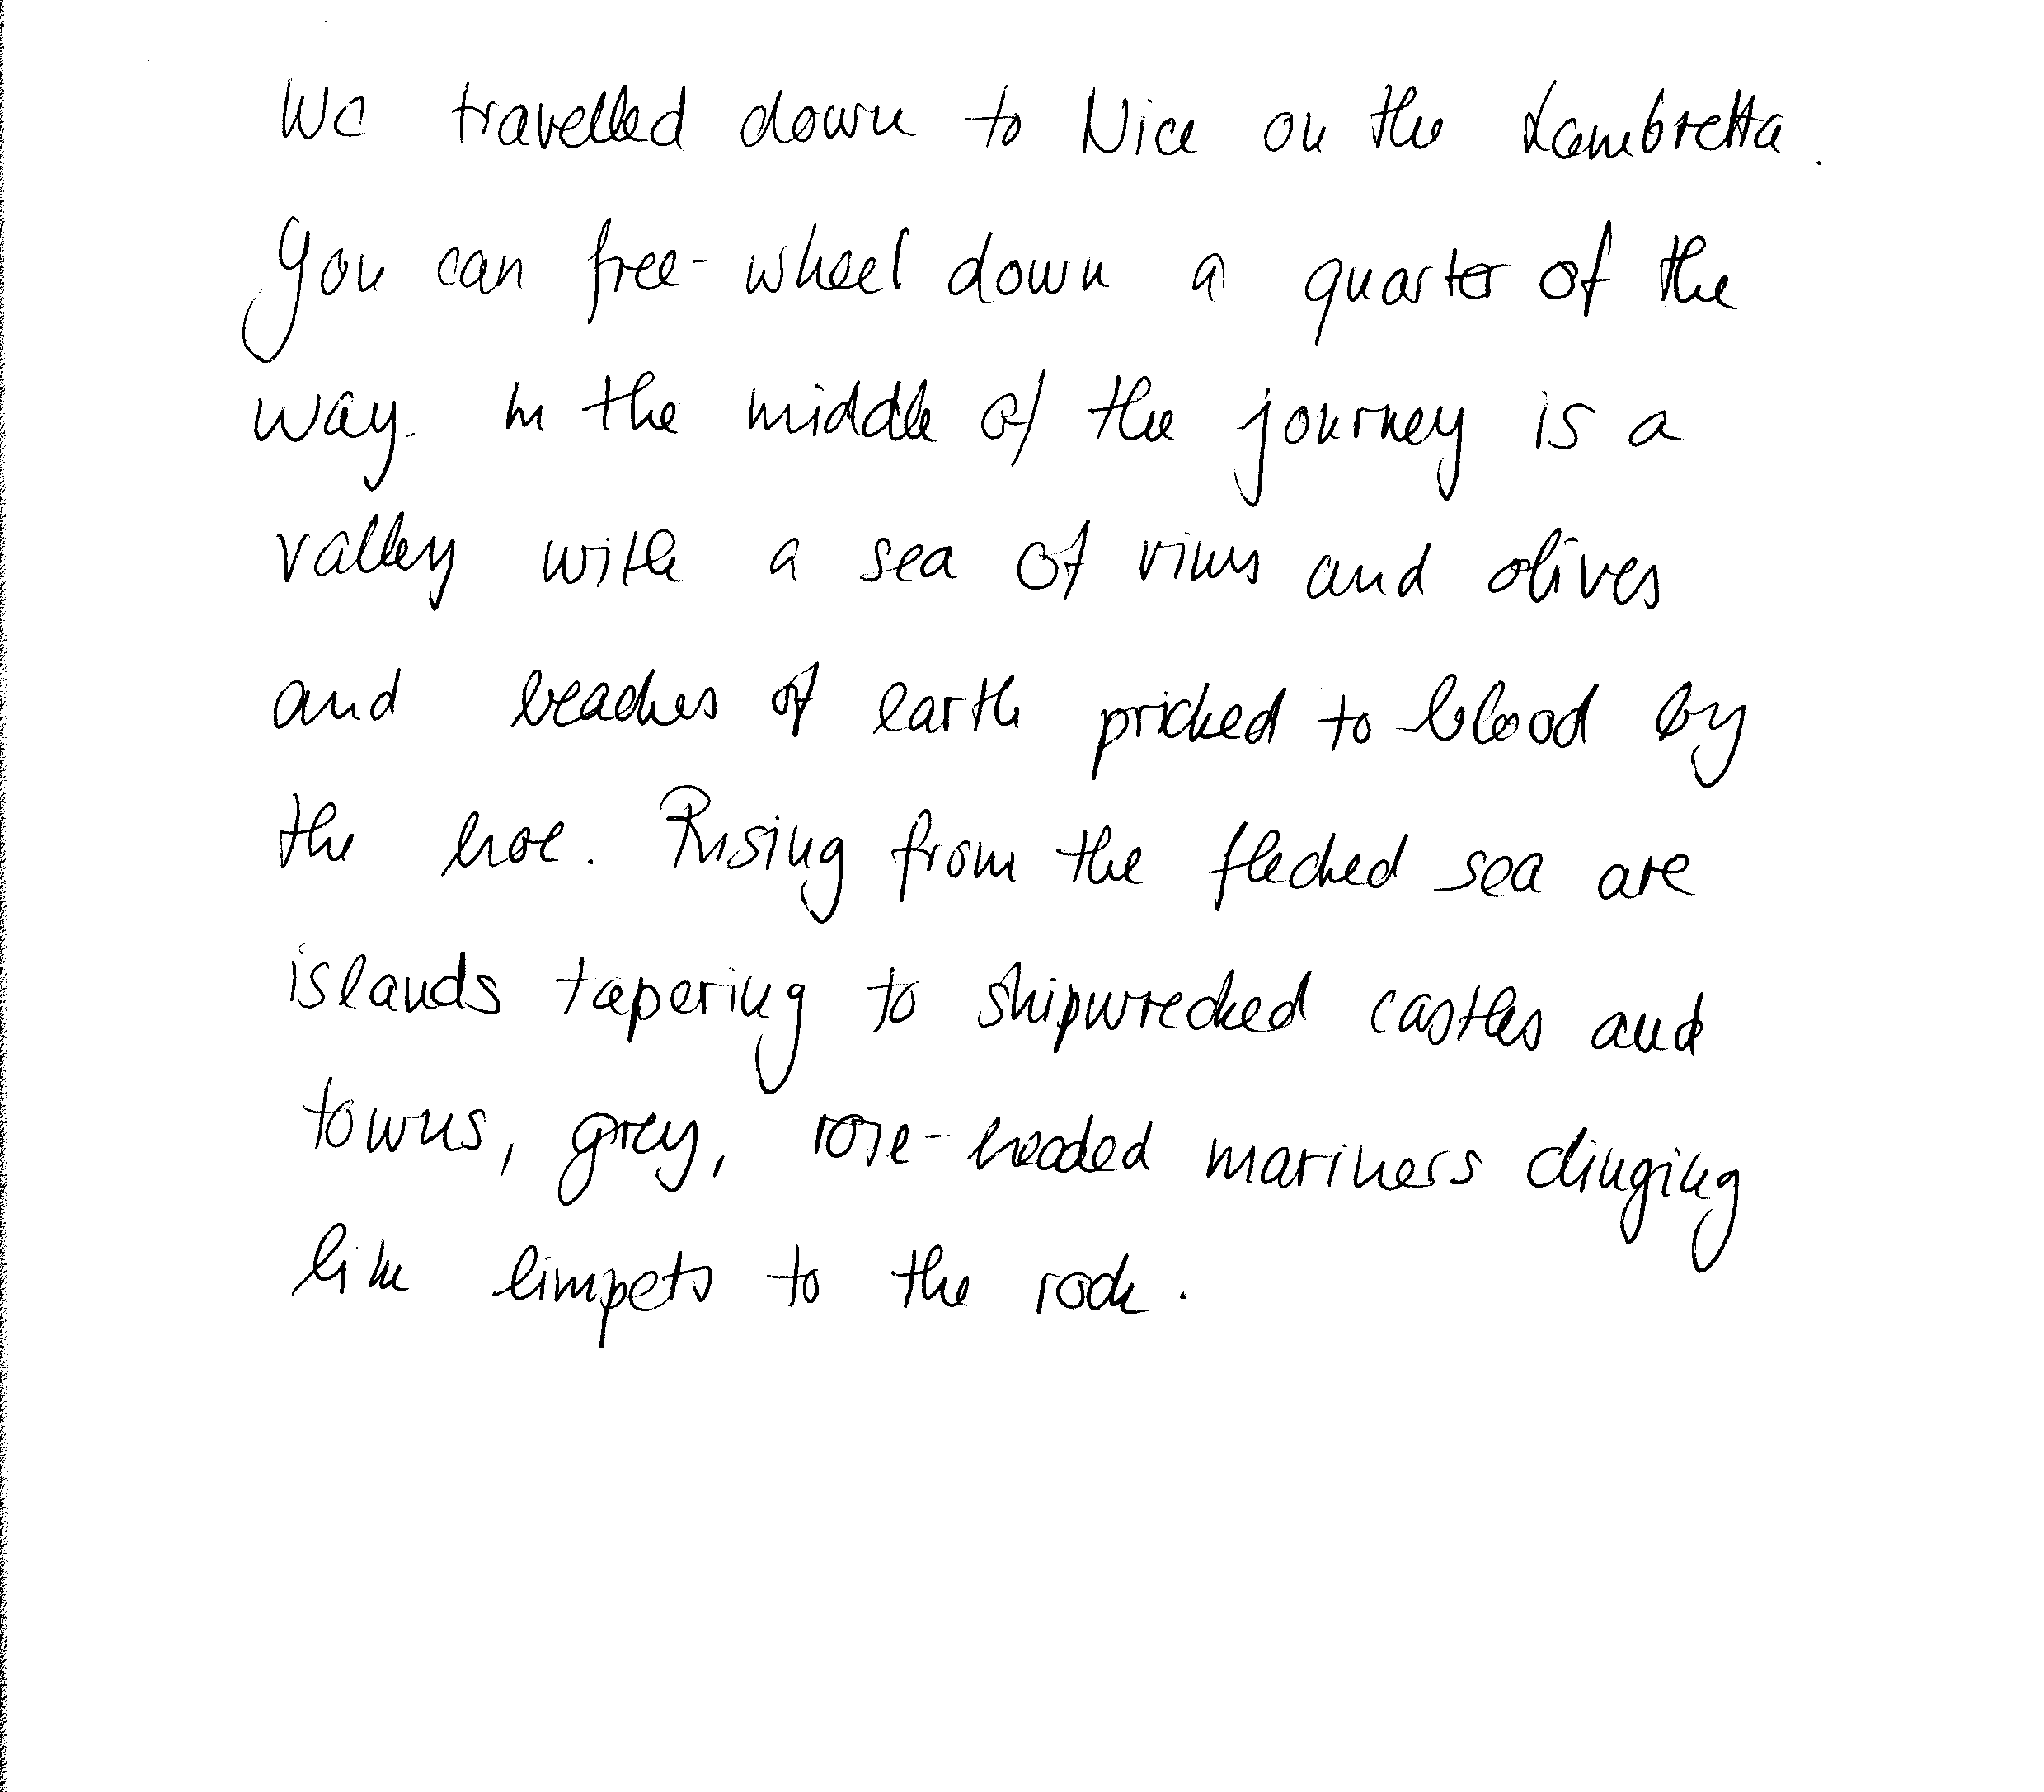 We travelled down to Nice on the Lambretta.
You can free-wheel down a quarter of the
way. In the middle of the journey is a
valley with a sea of vines and olives
and beaches of earth pricked to blood by
the hoe. Rising from the flecked sea are
islands tapering to shipwrecked castles and
towns, grey, rose-headed mariners clinging
like limpets to the rock.